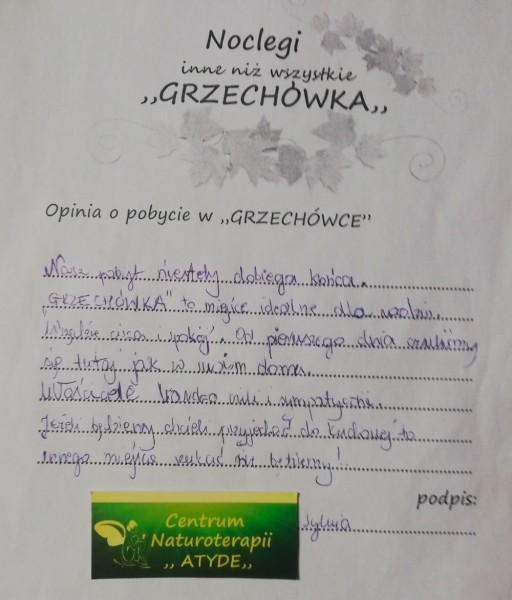 Noclegi
inne niż wszystkie
,,GRZECHÓWKA,,
Opinia o pobycie w ,,GRZECHÓWCE"
Nasz pobyt niestety dobiega końca.
"GRZECHÓWKA" to miejsce idealne dla rodzin.
Wszędzie cisza i spokój. Od pierwszego dnia czuliśmy
się tutaj jak w swoim domu.
Właściciele bardzo mili i sympatyczni.
Jeżeli będziemy chcieli przyjechać do Kudowej to
innego miejsca szukać nie będziemy!
podpis:
Sylwia
Centrum
Naturoterapii
,, ATYDE,,